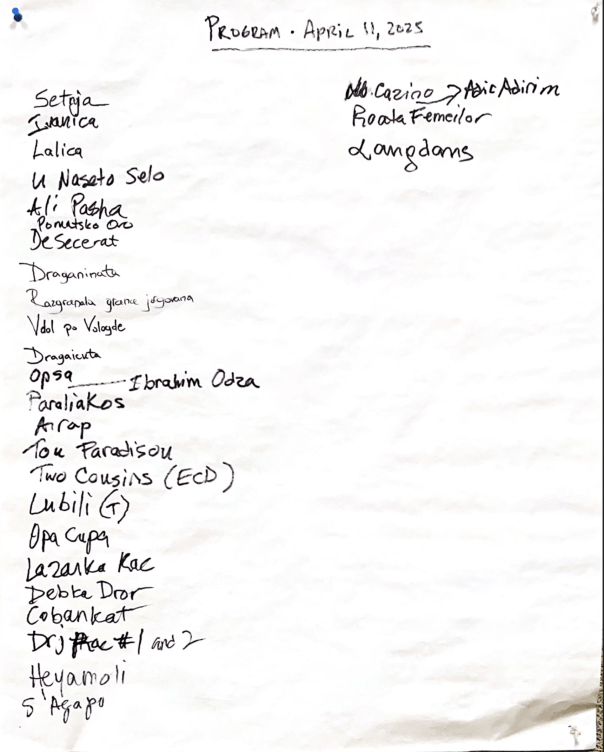 PROGRAM · APRIL 11, 2025
Setnja
Ivanica
Lalica
U Naseto Selo
Ali Pasha
Pomutsko Oro
De Secerat
Draganinata
Razgranala grana jorgovana
Vdol po Vologde
Dragaicuta
Opsa — Ibrahim Odza
Paraliakos
Arap
Tou Paradisou
Two Cousins (ECD)
Lubili (T)
Opa Cupa
Lazarka Rac
Debka Dror
Cobankat
Drj Rac #1 and 2
Heyamoli
S'Agapo
Cazino → Adir Adirim
Roata Femeilor
Langdans